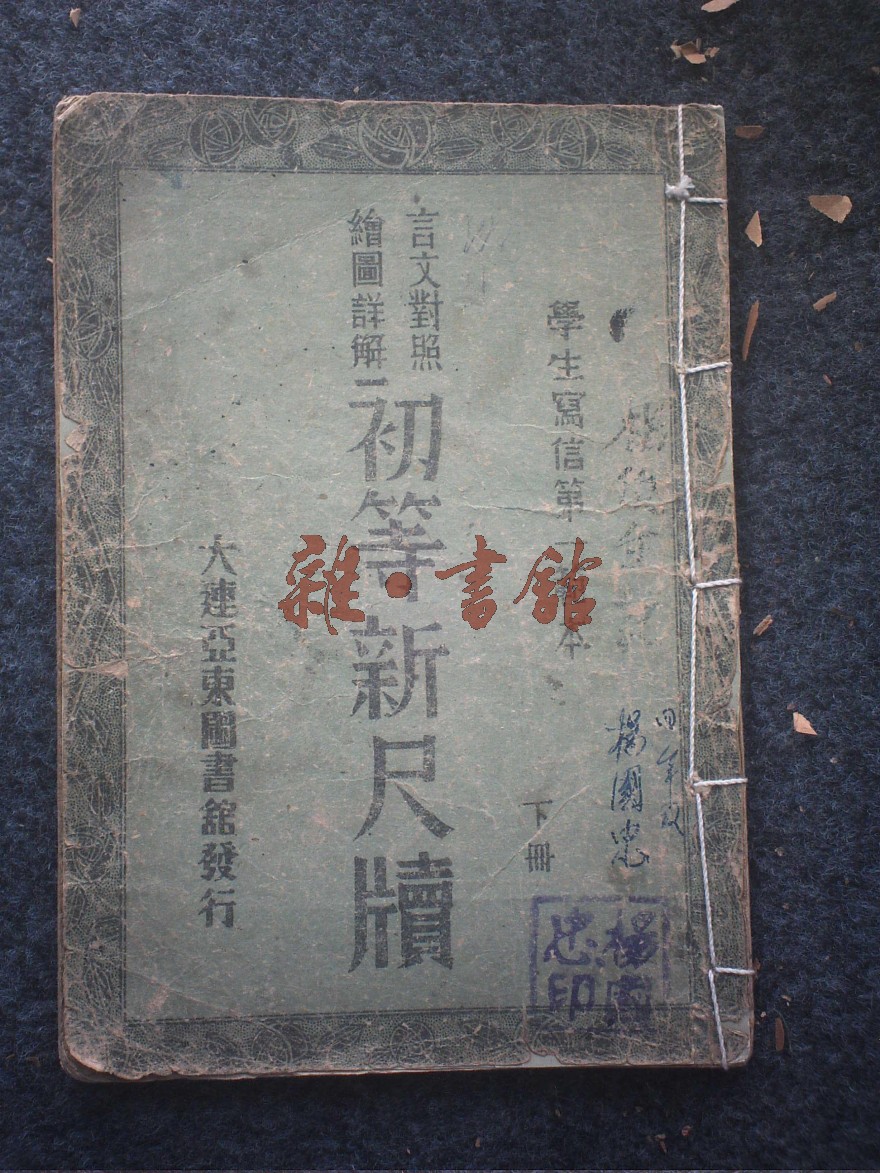 學生寫信第
本
下冊
言文對照
繪圖詳解
初等新尺牘
大連亞東圖書館發行
四年級
楊國忠
楊國忠印
雜·書館